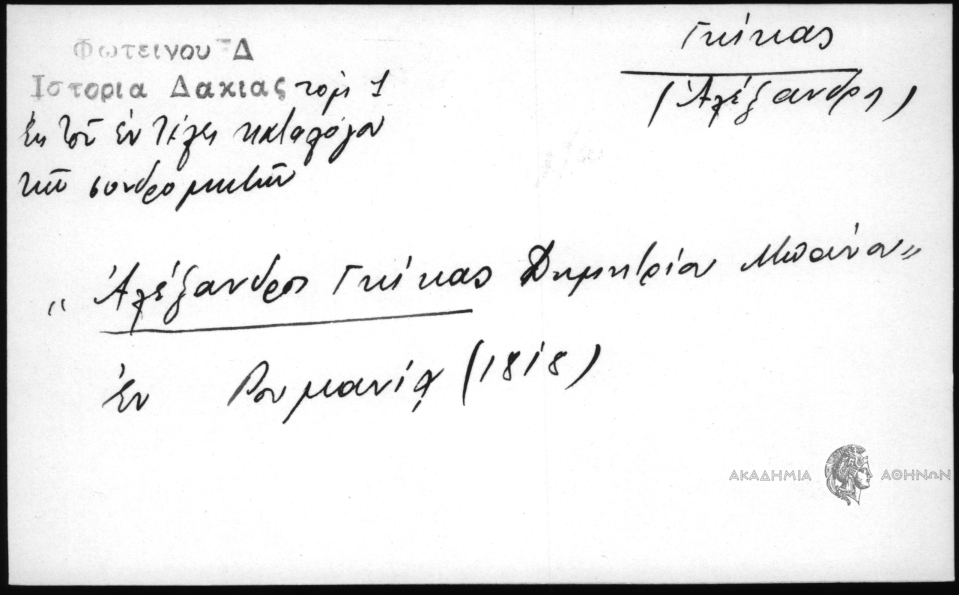 Φωτεινου Δ
Ιστορια Δακιας τομ 1
Ἐκ τοῦ ἐν τέλει καταλόγου
τῶν συνδρομητῶν
Γκίκας
(Ἀλέξανδρ)
„Ἀλέξανδρος Γκίκας Δημητρίου Μπάνου"
Ἐν Ρουμανίᾳ (1818)
ΑΚΑΔΗΜΙΑ ΑΘΗΝΩΝ